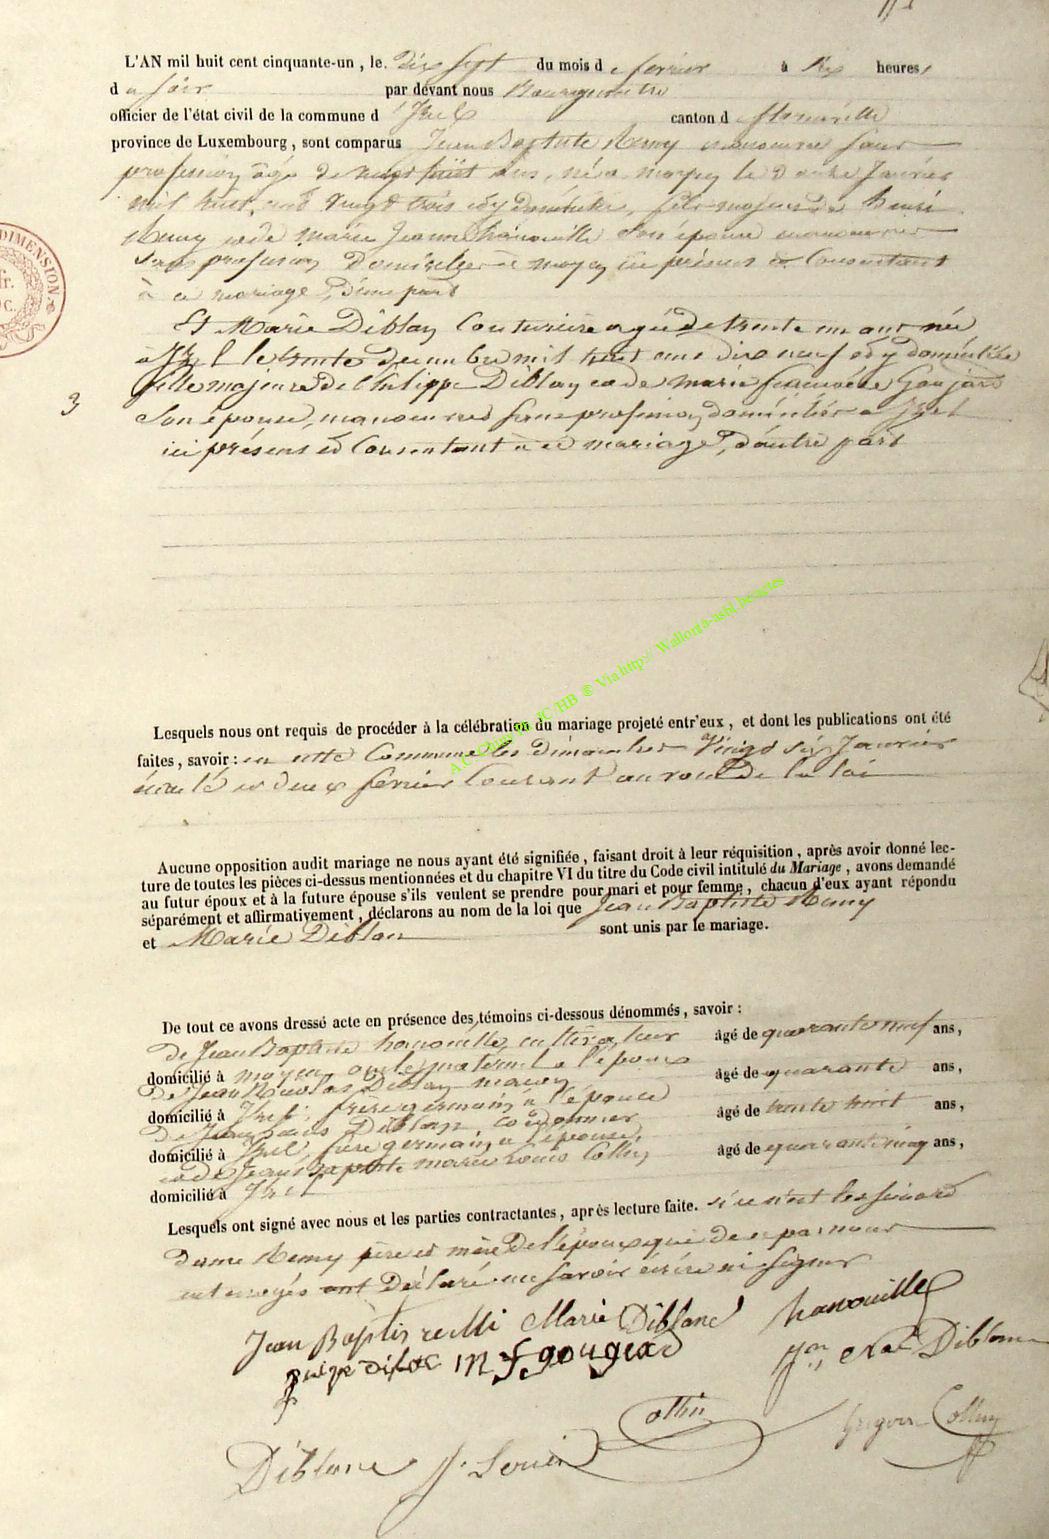 L'AN mil huit cent cinquante-un, le dix sept du mois de fevrier à six heures
du soir par devant nous Bourgmestre
officier de l'état civil de la commune d'Izel canton de florenville
province de Luxembourg, sont comparus Jean Baptiste Remy manoeuvre sans
profession, âgé de vingt huit ans, né a moyen le douze Janvier
mil huit cent vingt trois et y domicilié, fils majeur de henri
Remy et de marie Jeanne hanouille son épouse manoeuvres
sans profession domiciliés à moyen ici présens et Consentant
à ce mariage, d'une part
Et Marie Diblan Couturiere agée de trente un ans née
à Izel le trente decembre mil huit cent dix neuf et y domiciliée
fille majeure de Philippe Diblan et de marie françoise Goujard
3
son épouse, manoeuvres sans profession, domiciliés a Izel
ici présens et Consentant à ce mariage, d'autre part
A.C. Chiny Ph. JC HB © Via http:// Wallonia-asbl.be/actes
Lesquels nous ont requis de procéder à la célébration du mariage projeté entr'eux, et dont les publications ont été
faites, savoir : en notre Commune les dimanches Vingt six Janvier
écoulé et deux fevrier Courant au voeu de la loi
Aucune opposition audit mariage ne nous ayant été signifiée, faisant droit à leur réquisition, après avoir donné lec-
ture de toutes les pièces ci-dessus mentionnées et du chapitre VI du titre du Code civil intitulé du Mariage, avons demandé
au futur époux et à la future épouse s'ils veulent se prendre pour mari et pour femme, chacun d'eux ayant répondu
séparément et affirmativement, déclarons au nom de la loi que Jean Baptiste Remy
et Marie Diblan sont unis par le mariage.
De tout ce avons dressé acte en présence des témoins ci-dessous dénommés, savoir :
de Jean Baptiste hanouille, cultivateur âgé de quarante neuf ans,
domicilié à moyen, oncle maternel a l'époux
de Jean Nicolas Diblan, maçon âgé de quarante ans,
domicilié à Izel, frère germain à l'épouse
de Jean Louis Diblan, cordonnier âgé de trente huit ans,
domicilié à Izel, frère germain a l'épouse
et de Jean Baptiste marie Louis Collin âgé de quarante cinq ans,
domicilié à Izel
Lesquels ont signé avec nous et les parties contractantes, après lecture faite. si ce n'est les
Remy père et mère de l'époux qui de ce par nous
interrogés ont Déclaré ne savoir écrire ni signer
Jean Baptis remi Marie Diblanc hanouille
m f gougeard Jn, Nas Diblanc
Diblanc J. Louis Collin Collin
DIMENSION
fr.
c.